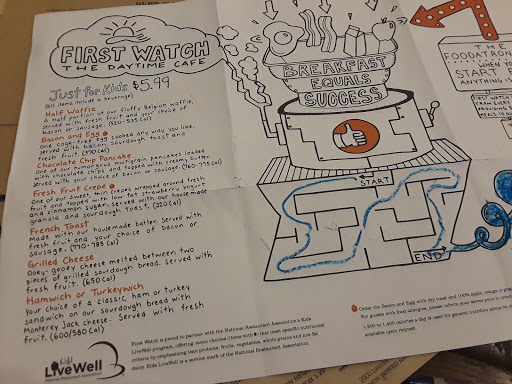 FIRST WATCH
THE DAYTIME CAFE
Just for Kids $5.99
(all items include a beverage)
Half Waffle
A half portion of our fluffy Belgian waffle,
served with fresh fruit and your choice of
bacon or sausage.
Bacon and Egg
One cage-free egg cooked any way you like,
served with bacon, sourdough toast and
fresh fruit. (370 cal)
Chocolate Chip Pancake
One of our humongous multigrain pancakes loaded
with chocolate chips and topped with whipped butter,
served with your choice of bacon or sausage.
Fresh Fruit Crepe
One of our sweet, thin crepes wrapped around fresh
fruit and topped with low-fat strawberry yogurt
and cinnamon sugar. Served with our housemade
granola and sourdough toast.
French Toast
Made with our housemade batter. Served with
fresh fruit and your choice of bacon or
sausage. (770-785 cal)
Grilled Cheese
Ooey-gooey cheese melted between two
pieces of grilled sourdough bread. Served with
fresh fruit. (650 cal)
Hamwich or Turkeywich
Your choice of a classic ham or turkey
sandwich on our sourdough bread with
Monterey Jack cheese. Served with fresh
fruit. (600/580 cal)
Kids
LiveWell
First Watch is proud to partner with the National Restaurant Association's Kids
LiveWell program, offering menu choices (items with) that meet specific nutritional
criteria by emphasizing lean proteins, fruits, vegetables, whole grains and low-fat
dairy. Kids LiveWell is a service mark of the National Restaurant Association.
BREAKFAST
EQUALS
SUCCESS
START
END
THE
FOOD-TRON
WHEN YOU
START
ANYTHING
FIRST WATCH
Order the Bacon and Egg with dry toast and 100% apple, orange or
For guests with food allergies, please inform your server prior to
1,200 to 1,400 calories a day is used for general nutrition advice for
available upon request.